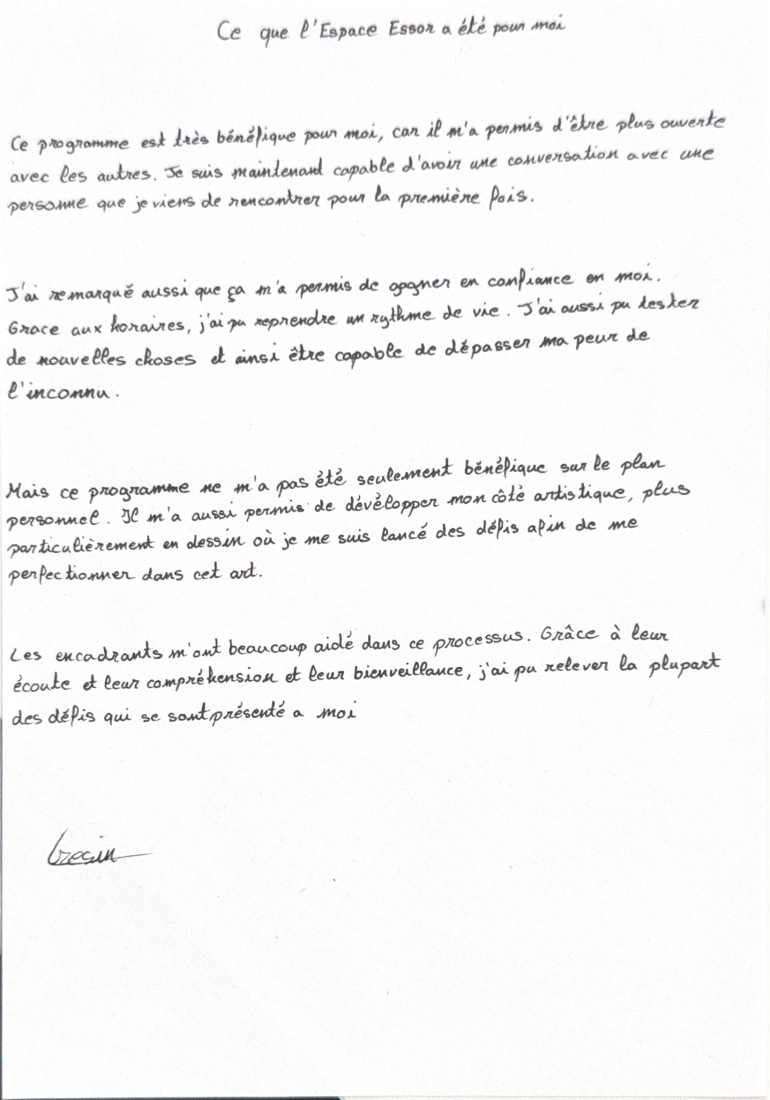 Ce que l'Espace Essor a été pour moi
Ce programme est très bénéfique pour moi, car il m'a permis d'être plus ouverte
avec les autres. Je suis maintenant capable d'avoir une conversation avec une
personne que je viens de rencontrer pour la première fois.
J'ai remarqué aussi que ça m'a permis de gagner en confiance en moi.
Grace aux horaires, j'ai pu reprendre un rythme de vie. J'ai aussi pu tester
de nouvelles choses et ainsi être capable de dépasser ma peur de
l'inconnu.
Mais ce programme ne m'a pas été seulement bénéfique sur le plan
personnel. Il m'a aussi permis de développer mon côté artistique, plus
particulièrement en dessin où je me suis lancé des défis afin de me
perfectionner dans cet art.
Les encadrants m'ont beaucoup aidé dans ce processus. Grâce à leur
écoute et leur compréhension et leur bienveillance, j'ai pu relever la plupart
des défis qui se sont présenté a moi